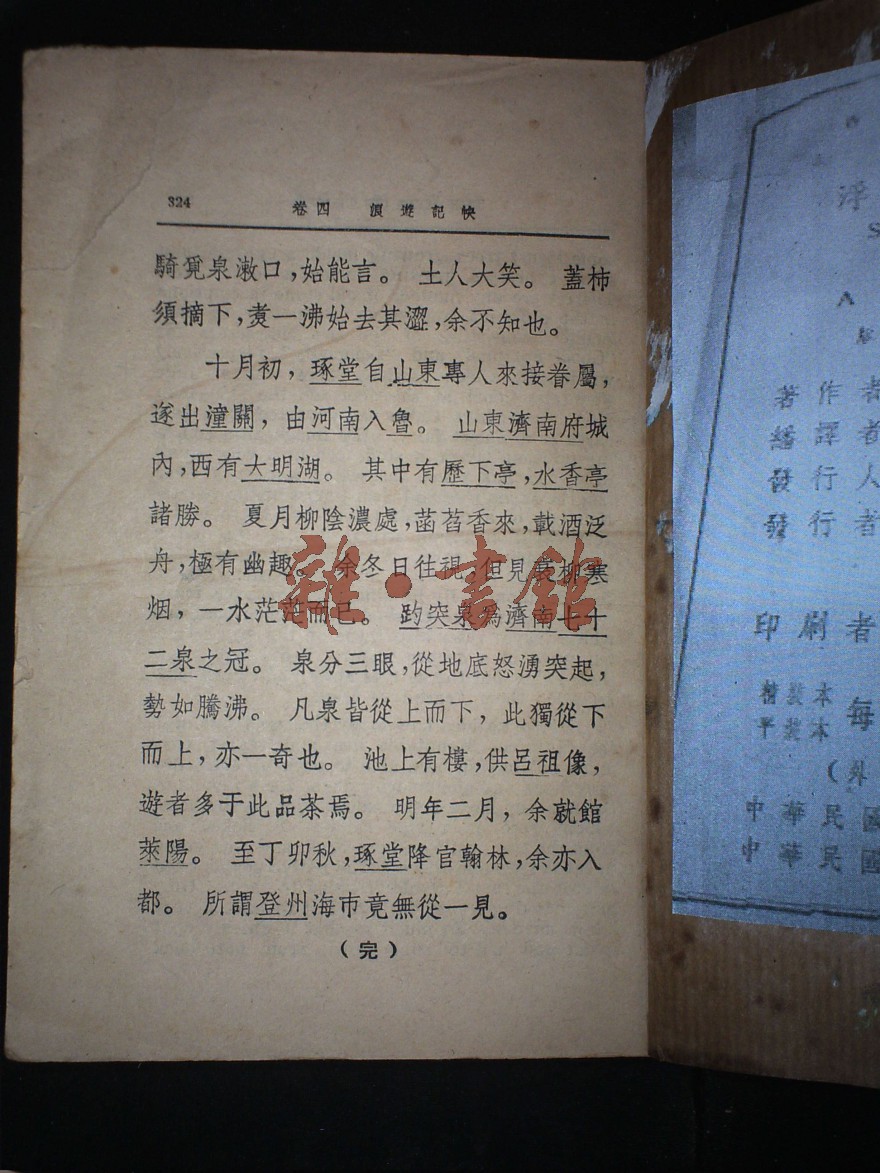 324
卷四 浪遊記快
騎覓泉漱口，始能言。 土人大笑。 蓋柿
須摘下，煑一沸始去其澀，余不知也。
十月初，琢堂自山東專人來接眷屬，
遂出潼關，由河南入魯。 山東濟南府城
內，西有大明湖。 其中有歷下亭，水香亭
諸勝。 夏月柳陰濃處，菡萏香來，載酒泛
舟，極有幽趣。 余冬日往視，但見衰柳寒
烟，一水茫茫而已。 趵突泉爲濟南七十
二泉之冠。 泉分三眼，從地底怒湧突起，
勢如騰沸。 凡泉皆從上而下，此獨從下
而上，亦一奇也。 池上有樓，供呂祖像，
遊者多于此品茶焉。 明年二月，余就館
萊陽。 至丁卯秋，琢堂降官翰林，余亦入
都。 所謂登州海市竟無從一見。
（完）
雜·書館
浮
S
著作者
繙譯者
發行人
發行者
印刷者
精裝本
平裝本
每
（外
中華民國
中華民國